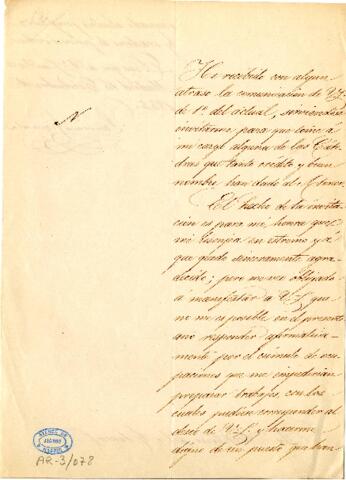 N
He recibido con algun
atraso la comunicación de V.S.
de 1º del actual, sirviendose
invitarme para que tome á
mi cargo alguna de las Cáte-
dras que tanto crédito y buen
nombre han dado al Ateneo.
El hecho de la invita-
cion es para mi, honra que
mi lisonjea en estremo y á
que quedo sinceramente agra-
decido; pero me veo obligado
a manifestar a V.S. que
no me es posible en el presente
año responder afirmativa-
mente por el cúmulo de ocu-
paciones que me impedirian
preparar trabajos, con los
cuales pudiera corresponder al
deseo de V.S. y hacerme
digno de un puesto que han
ATENEO DE
MADRID
AR-3/078